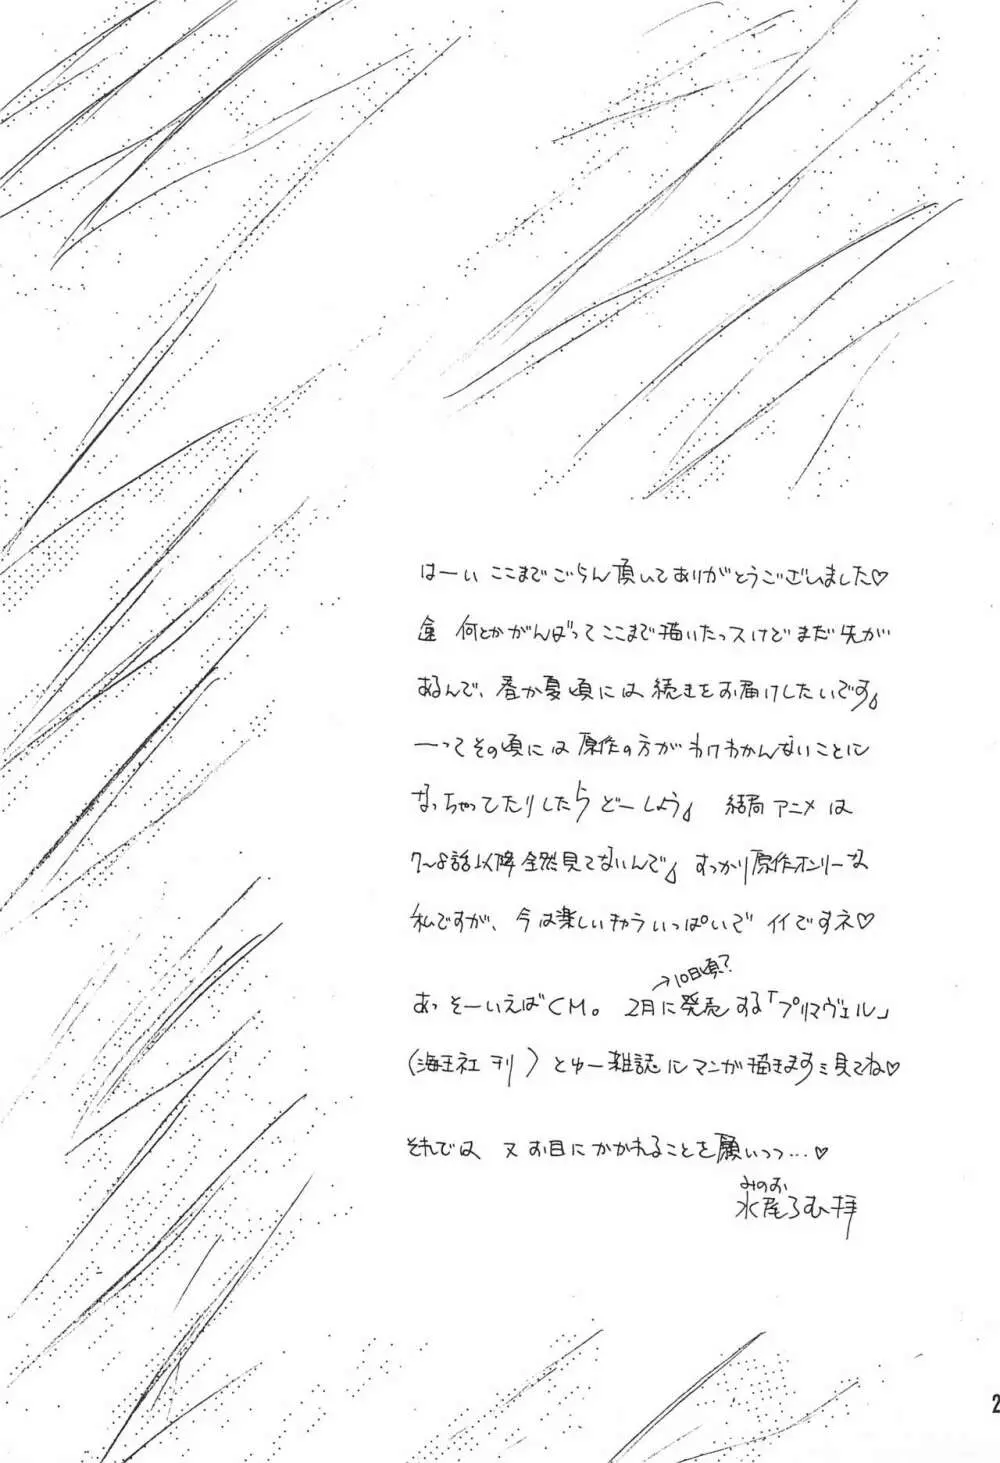 はーい ここまでごらん頂いてありがとうございました♡
何とかがんばってここまで描いたっスけどまだ先が
あるんで、春か夏頃には続きをお届けしたいです。
ーってその頃には原作の方がわけわかんないことに
なっちゃってたりしたらどーしよう。 結局アニメは
7〜8話以降全然見てないんで。すっかり原作オンリーな
私ですが、今は楽しいキャラいっぱいでイイですネ♡
→10日頃?
あっ そーいえばCM。 2月に発売する「プリマヴェル」
(海王社刊)とゆー雑誌にマンガ描きますミ見てね♡
それでは 又お目にかかれることを願いつつ…♡
みのお
水尾ろむ拝
2